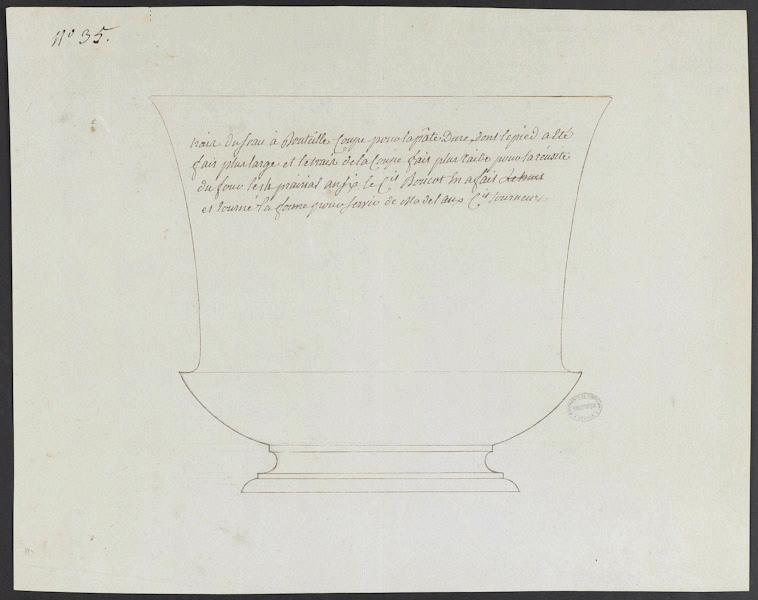 N° 35.
trais du seau à Bouteille Coupe pour la pâte Dure dont le pied a été
fait plus large et le trais de la Coupe fait plus taible pour la réusite
du four le 14 prairial an six le C.it Boucot en a fait
et tourné la forme pour servir de Model aux C.it tourneurs